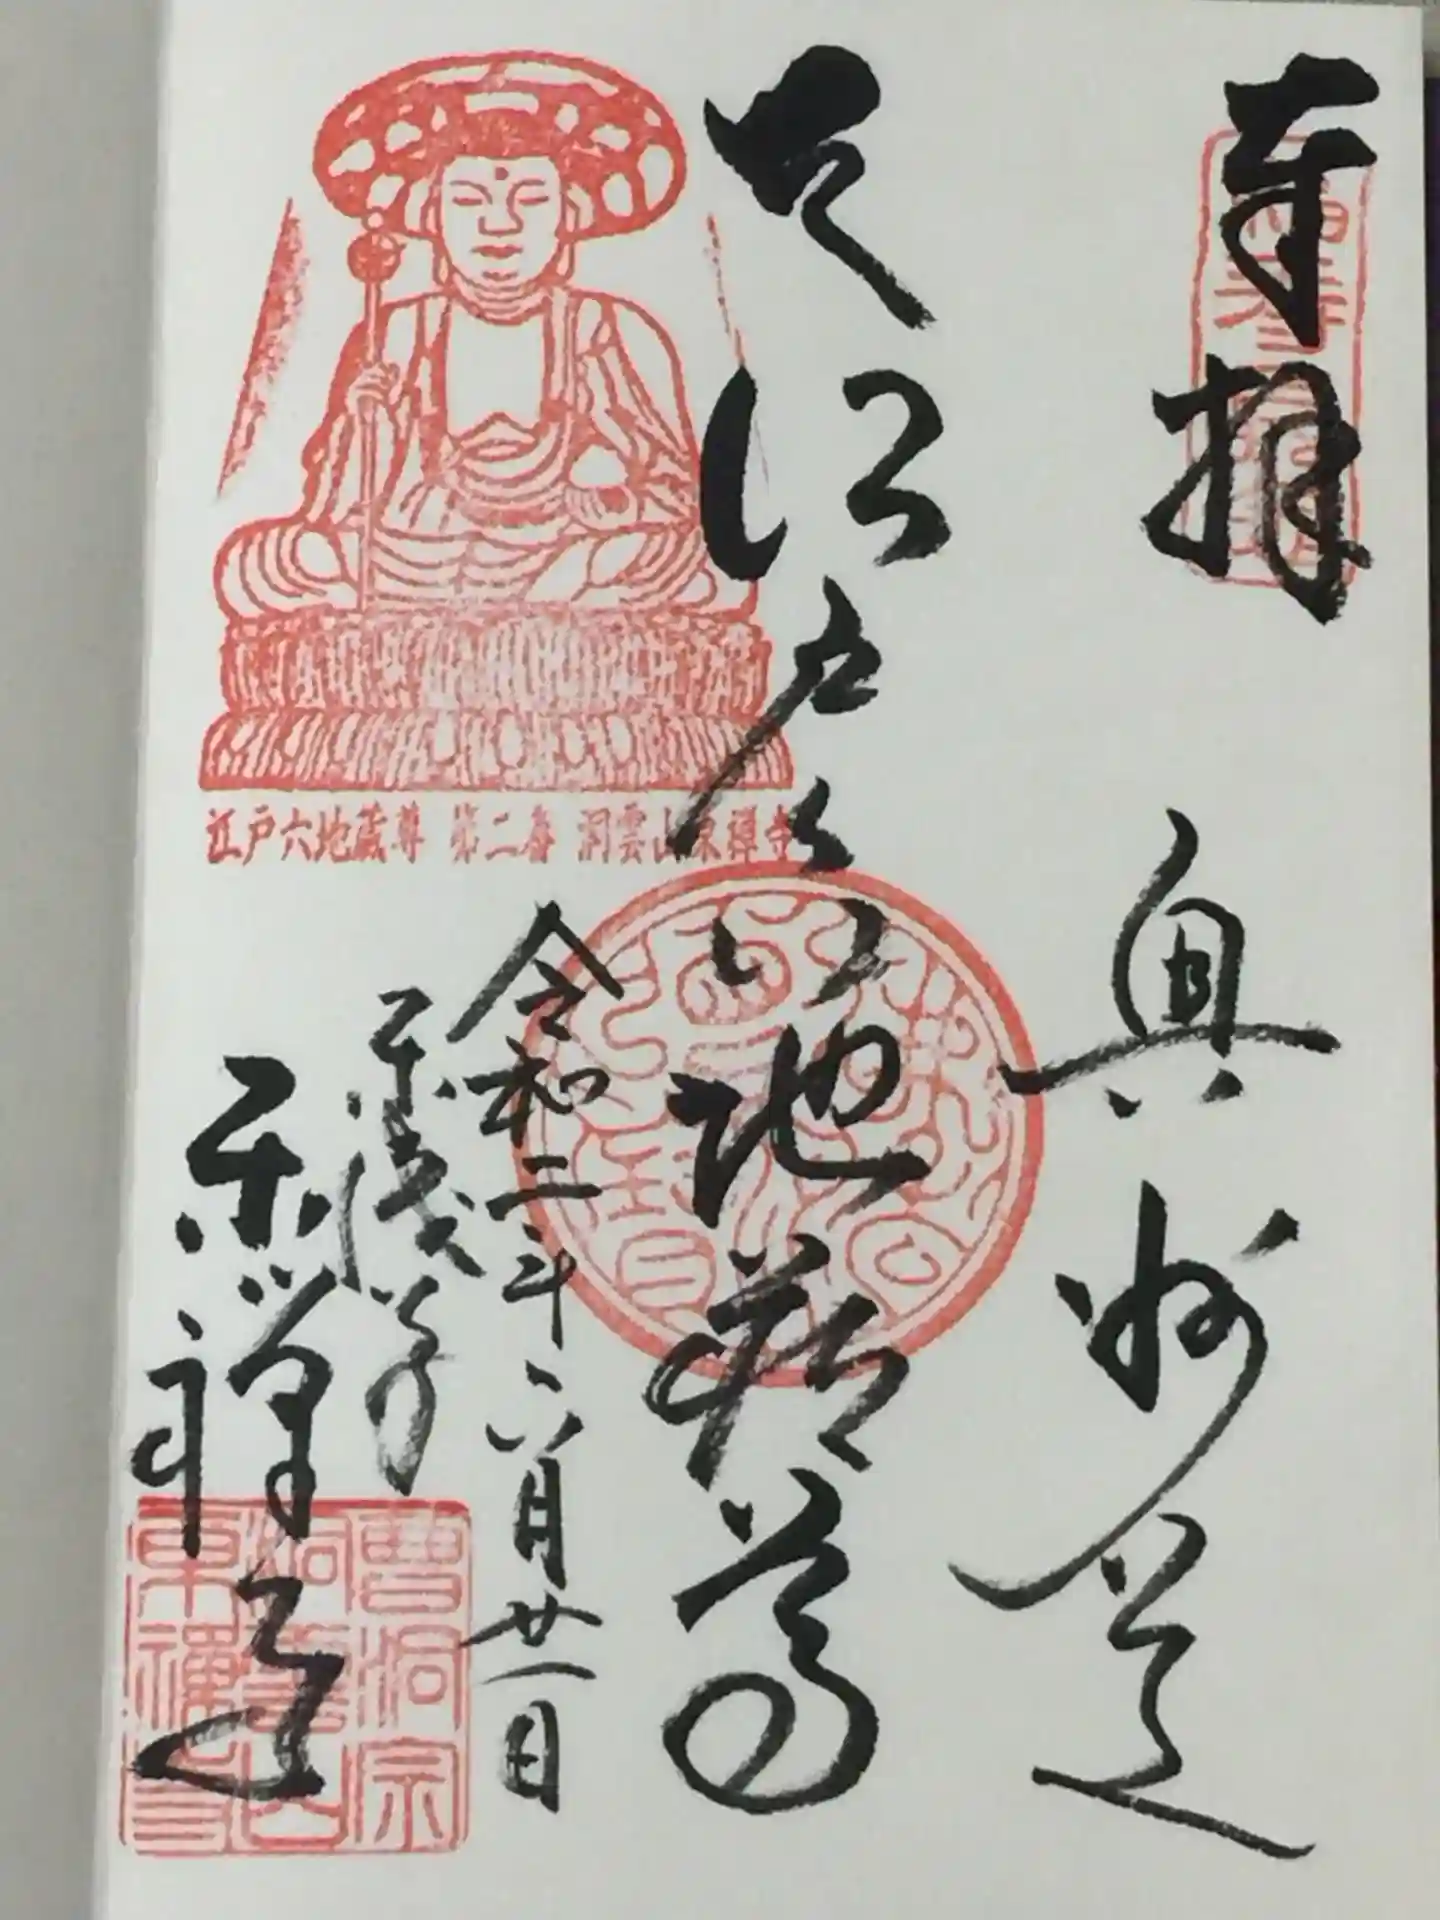 奉拝
奥州道
大江戸六地蔵尊
令和二年八月廿一日
東浅草
東禅寺
江戸六地蔵尊 第二番 洞雲山東禅寺
曹洞宗
洞雲山
東禅寺